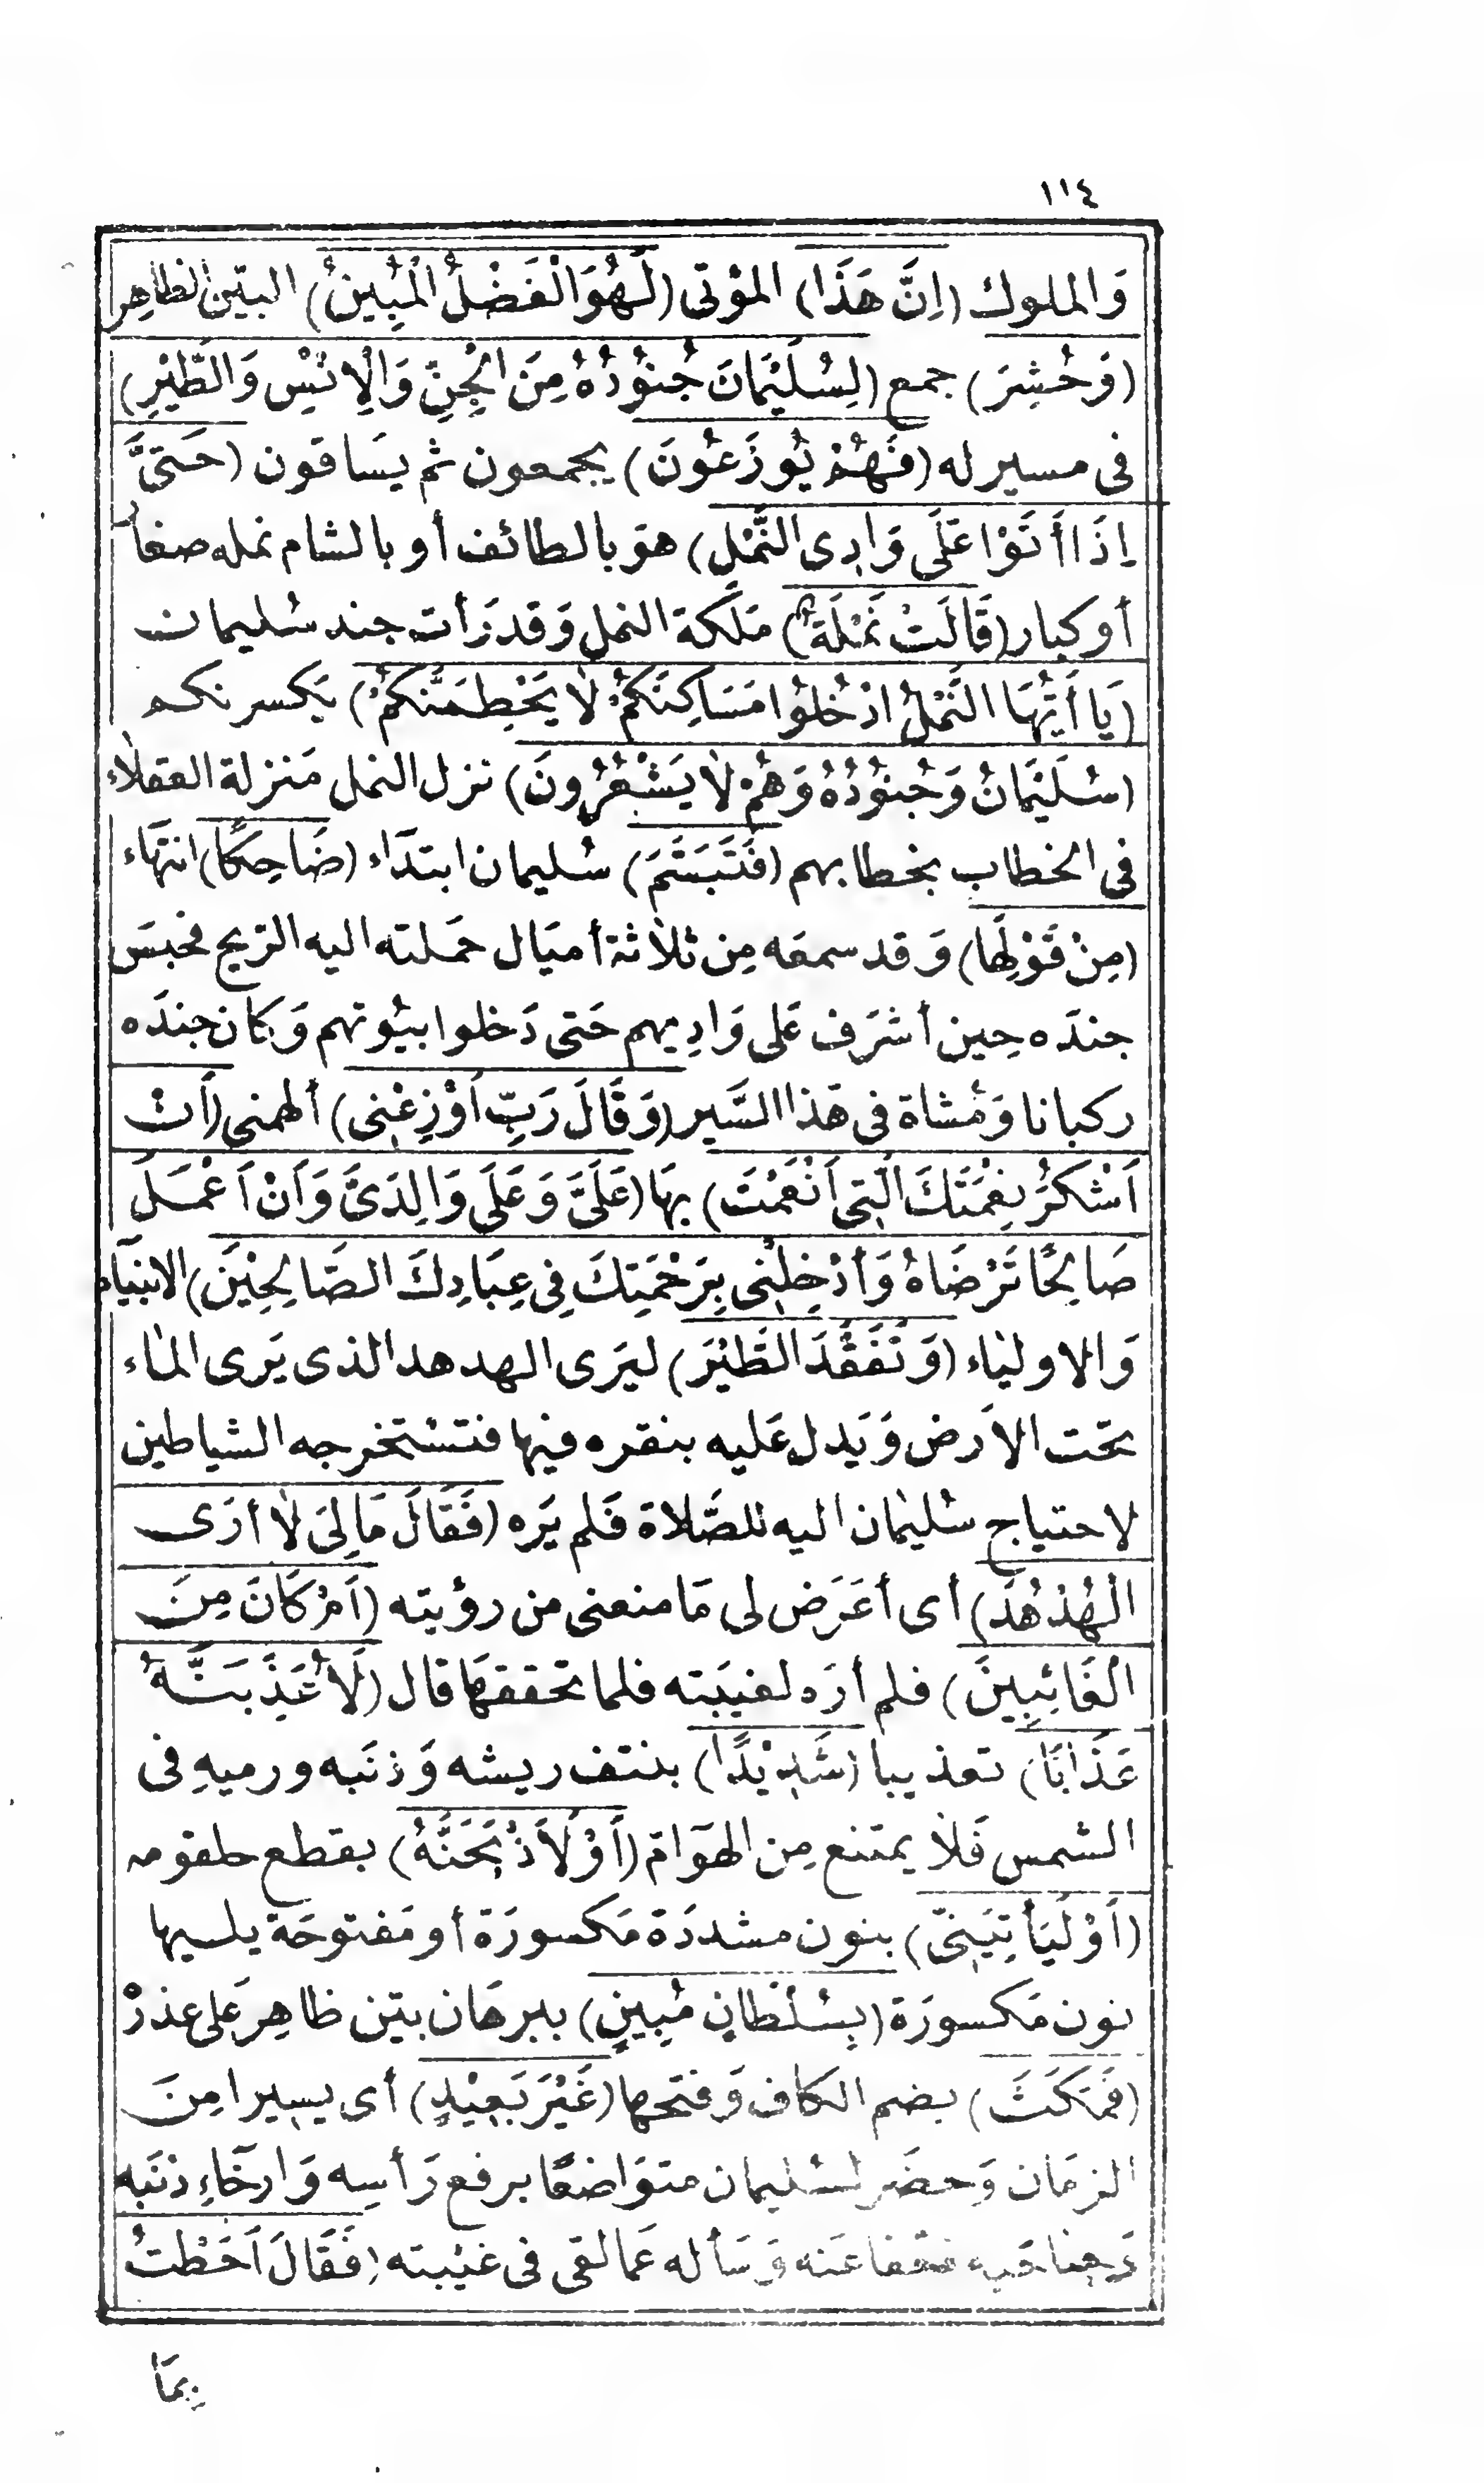 ١١٤
وَالملوك (اِنَّ هَذَا) المؤتى (لَهُوَ الْفَضْلُ الْمُبِينُ) البيّن الظاهر
(وَحُشِرَ) جمع (لِسُلَيْمَانَ جُنُودُهُ مِنَ الْجِنِّ وَالْاِنْسِ وَالطَّيْرِ)
فى مسير له (فَهُمْ يُوزَعُونَ) يجمعون ثم يسَاقون (حَتَّىَ
اِذَا أَتَوْا عَلَى وَادِى النَّمْلِ) هوَ بالطائف أو بالشام نمله صغار
أو كبار (قَالَتْ نَمْلَةٌ) مَلكة النمل وَقد رَأت جند سُليمان
(يَا أَيُّهَا النَّمْلُ ادْخُلُوا مَسَاكِنَكُمْ لَا يَحْطِمَنَّكُمْ) يَكسرنكم
(سُلَيْمَانُ وَجُنُودُهُ وَهُمْ لَا يَشْعُرُونَ) نزل النمل مَنزلة العقلاء
فى الخطاب بخطابهم (فَتَبَسَّمَ) سُليمان ابتدَاء (ضَاحِكًا) انتهَاء
(مِنْ قَوْلِهَا) وَقد سمعَه مِن ثلاثة أميَال حَملته اليه الريح فحبسَ
جندَه حِين أشرَف عَلى وَادِيهم حَتى دَخلوا بيُوتهم وَكان جندَه
ركبانا وَمُشاة فى هَذا السَّير (وَقَالَ رَبِّ أَوْزِعْنِى) ألهمنى (أَنْ
أَشْكُرَ نِعْمَتَكَ الَّتِى أَنْعَمْتَ) بهَا (عَلَىَّ وَعَلَى وَالِدَىَّ وَأَنْ أَعْمَلَ
صَالِحًا تَرْضَاهُ وَأَدْخِلْنِى بِرَحْمَتِكَ فِى عِبَادِكَ الصَّالِحِيْنَ) الانبيَاء
وَالاوليَاء (وَتَفَقَّدَ الطَّيْرَ) ليَرى الهدهد الذى يَرى المَاء
تحت الاَرض وَيَدل عَليه بنقره فيها فتسْتخرجه الشياطين
لاحتياج سُليمَان اليه للصَّلاة فَلم يَره (فَقَالَ مَا لِىَ لَا أَرَى
الْهُدْهُدَ) أى أعَرَض لى مَا منعنى من رؤيته (اَمْ كَانَ مِنَ
الْغَائِبِينَ) فلم أرَه لغيبَته فلما تحققهَا قال (لَأُعَذِّبَنَّهُ
عَذَابًا) تعذيبا (شَدِيْدًا) بنتف ريشه وَذنَبه ورميهِ فى
الشمس فَلا يمتنع مِن الهوَامّ (أَوْ لَأَذْبَحَنَّهُ) بقطع حلقومه
(أَوْ لَيَأْتِيَنِّى) بنون مشددَة مَكسورَة أو مَفتوحَة يليها
نون مَكسورَة (بِسُلْطَانٍ مُبِينٍ) ببرهَان بيّن ظاهِر عَلى عذرْ
(فَمَكَثَ) بضم الكاف وَفتحها (غَيْرَ بَعِيْدٍ) أى يسِيرا مِنَ
الزمَان وَحضَر لسُليمان متوَاضعًا برفع رَأسِه وَارخَاءِ ذنَبه
وَجنَاحَيه فعَفا عَنه وَسَأله عَما لقى فى غيْبته (فَقَالَ أَحَطْتُ
بِمَا